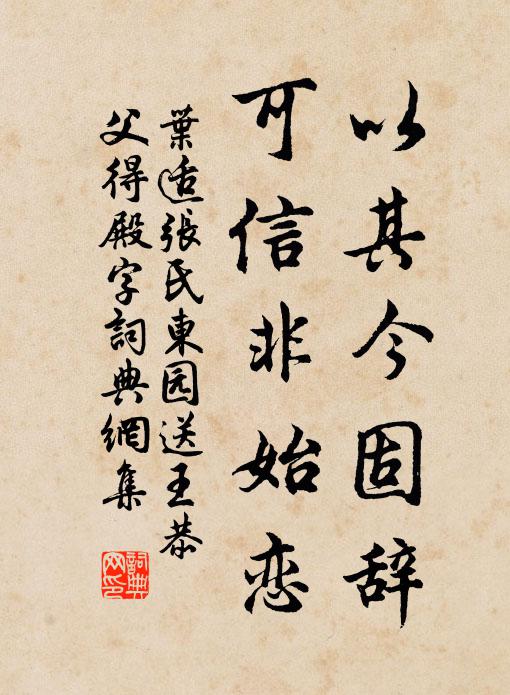 以其今固辞
可信非始恋
葉适張氏東园送王恭
父得殿字詞典網集
詞典
网印